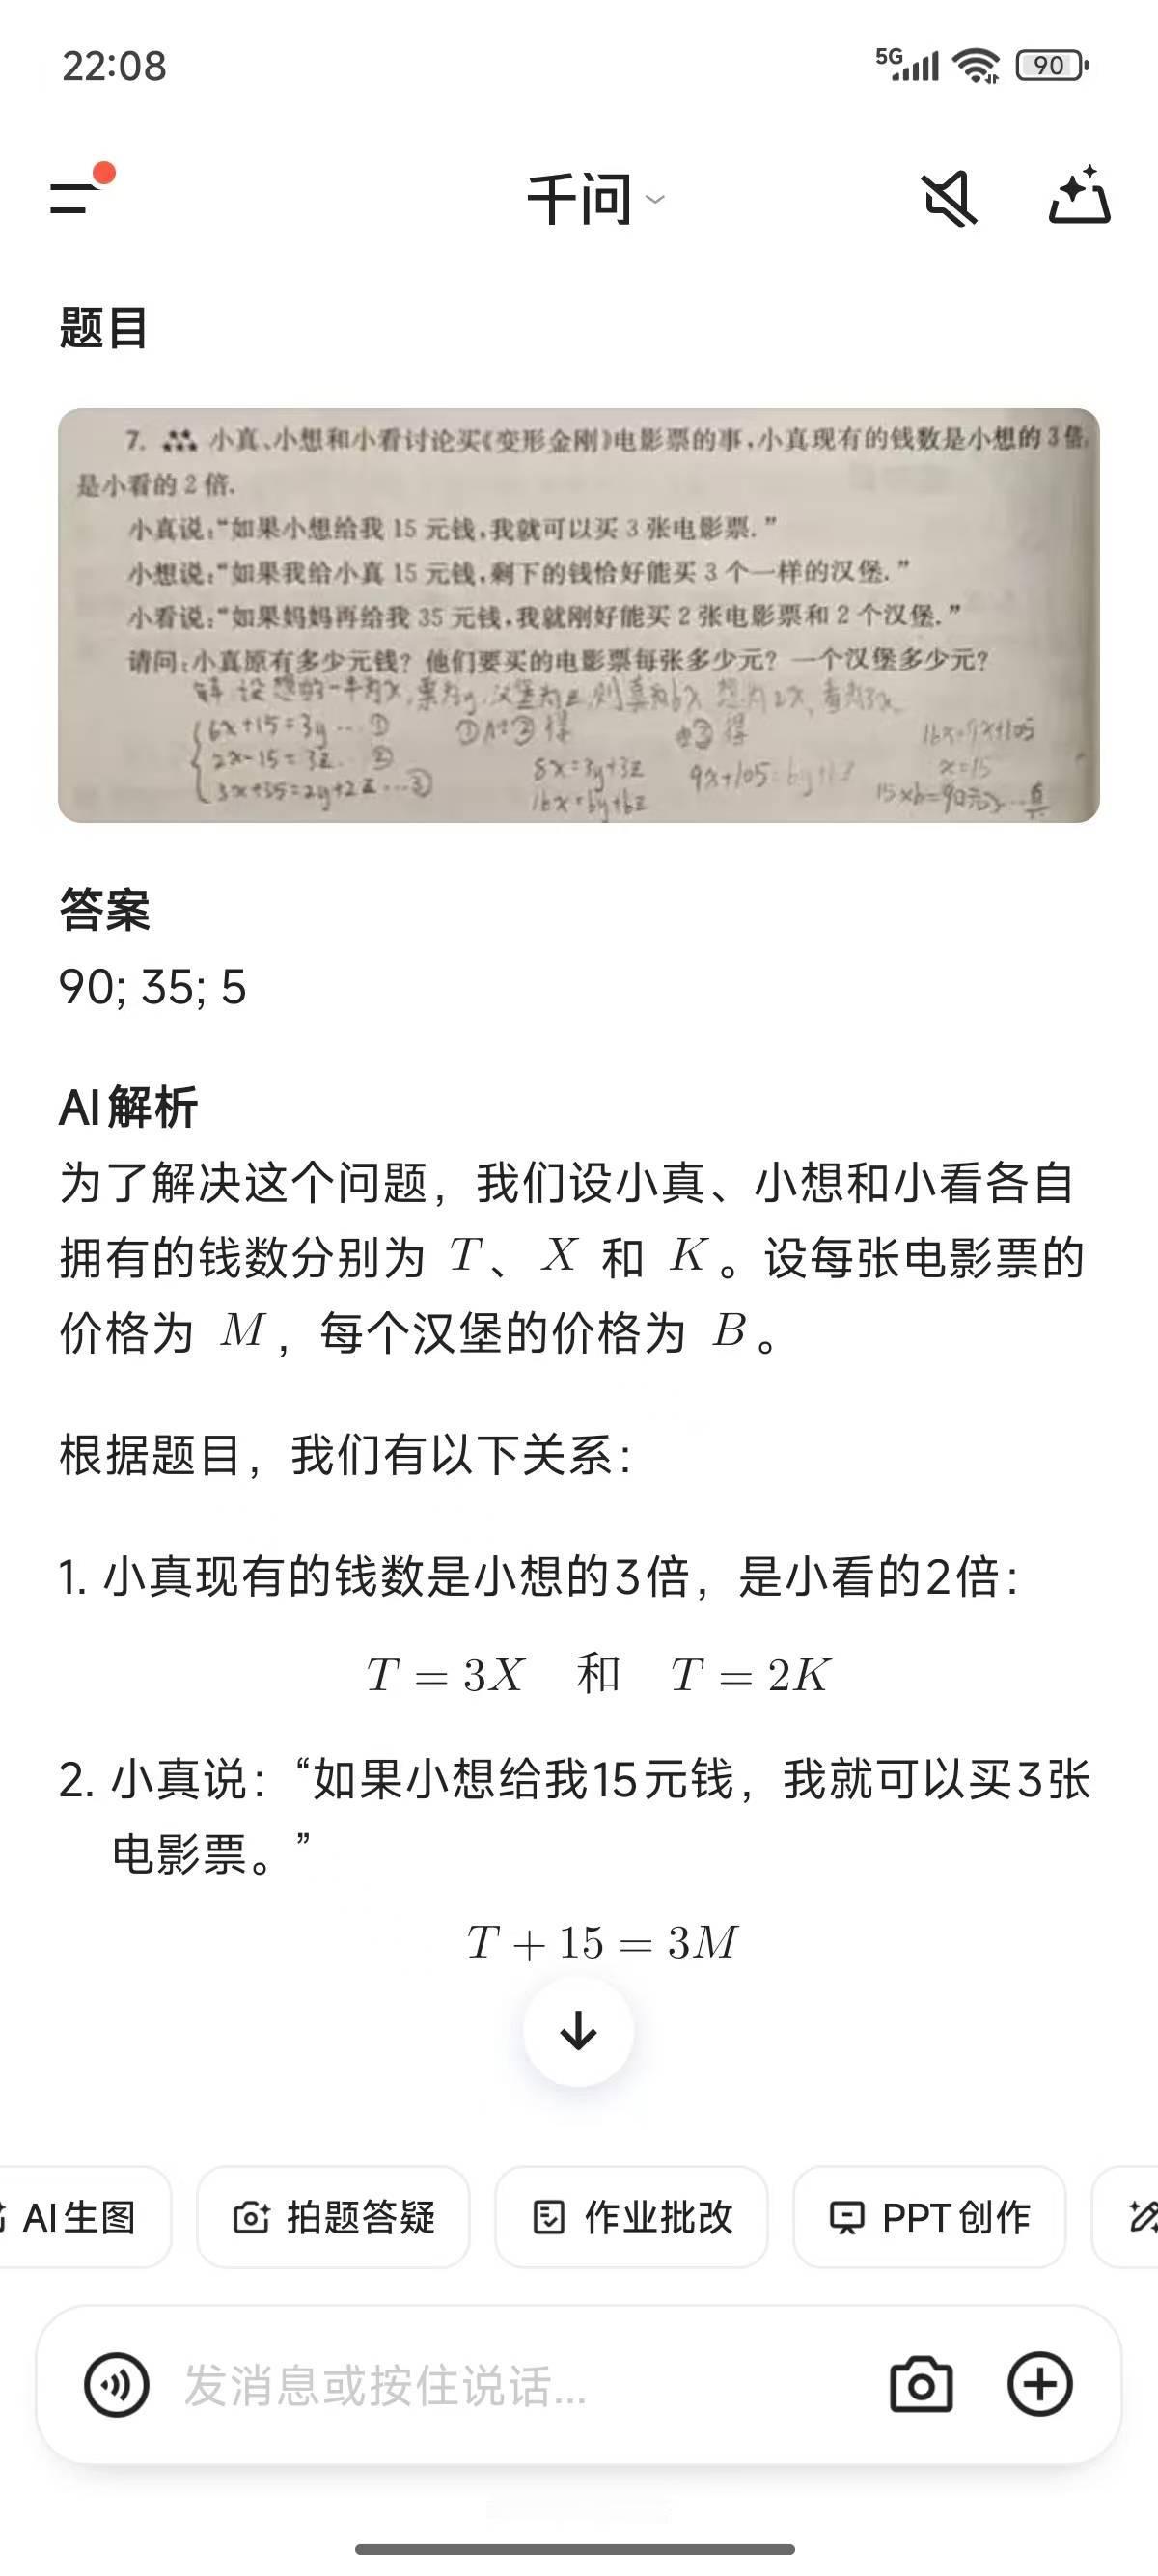 22:08
5G
90
千问
题目
7. 小真、小想和小看讨论买《变形金刚》电影票的事,小真现有的钱数是小想的3倍,
是小看的2倍.
小真说:“如果小想给我15元钱,我就可以买3张电影票.”
小想说:“如果我给小真15元钱,剩下的钱恰好能买3个一样的汉堡.”
小看说:“如果妈妈再给我35元钱,我就刚好能买2张电影票和2个汉堡.”
请问:小真原有多少元钱? 他们要买的电影票每张多少元? 一个汉堡多少元?
解 设 想的一半为x,票为y,汉堡为z,则真为6x 想为2x,看为3x.
6x+15=3y…① ①加②得 由③得 16x=9x+105
2x-15=3z. ② 8x=3y+3z 9x+105=6y+6z x=15
3x+35=2y+2z…③ 16x=6y+6z 15×6=90元…真
答案
90; 35; 5
AI解析
为了解决这个问题，我们设小真、小想和小看各自
拥有的钱数分别为 T、X 和 K。设每张电影票的
价格为 M，每个汉堡的价格为 B。
根据题目，我们有以下关系：
1. 小真现有的钱数是小想的3倍，是小看的2倍：
T = 3X 和 T = 2K
2. 小真说：“如果小想给我15元钱，我就可以买3张
电影票。”
T + 15 = 3M
AI生图 拍题答疑 作业批改 PPT创作
发消息或按住说话...